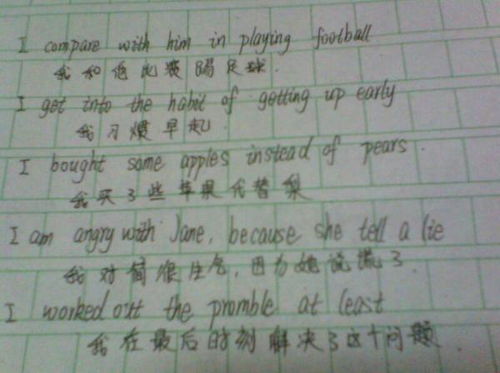 I compare with him in playing football
我和他比赛踢足球.
I get into the habit of getting up early
我习惯早起.
I bought some apples instead of pears.
我买了些苹果代替梨
I am angry with Jane, because she tell a lie
我对简很生气,因为她说谎了.
I worked out the promble at least
我在最后时刻解决了这个问题.